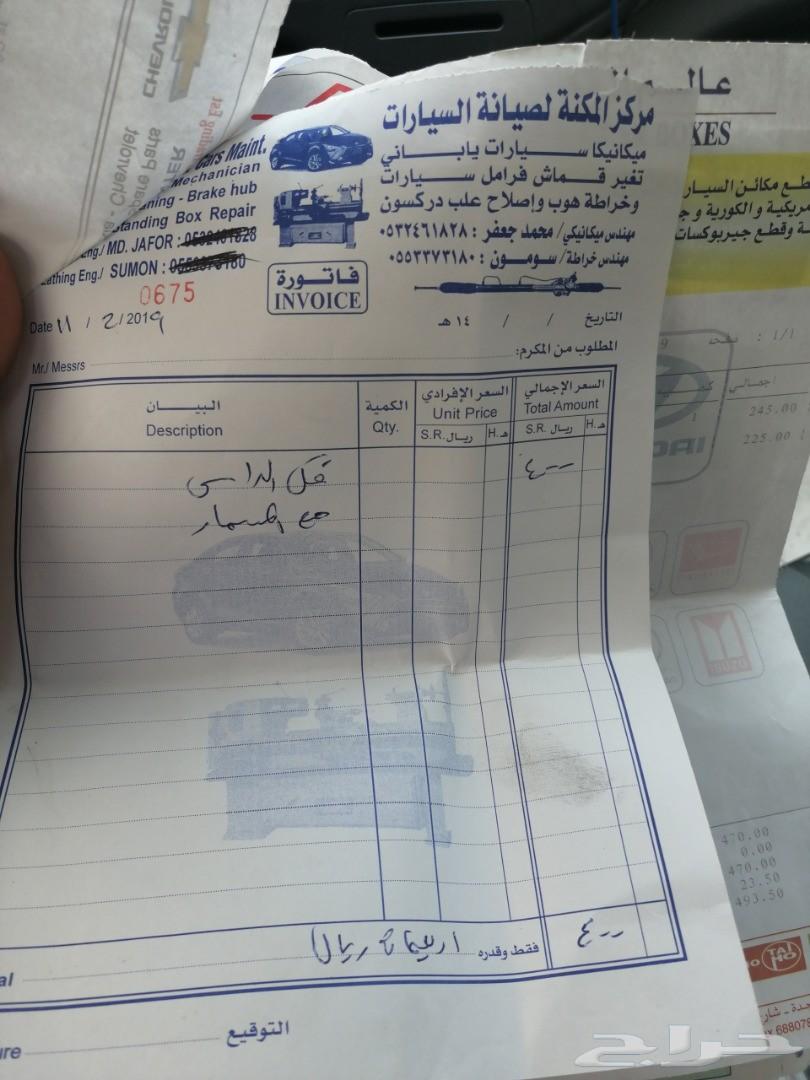 CHEVROLET
Chevrolet
Spare Parts
مركز المكنة لصيانة السيارات
ميكانيكا سيارات ياباني
تغير قماش فرامل سيارات
وخراطة هوب وإصلاح علب دركسون
مهندس ميكانيكي/ محمد جعفر : ٠٥٣٢٤٦١٨٢٨
مهندس خراطة/ سومون : ٠٥٥٣٣٧٣١٨٠
Cars Maint.
Mechanician
ning - Brake hub
tanding Box Repair
Eng./ MD. JAFOR :
athing Eng./ SUMON :
0675
فاتورة
INVOICE
Date 11 / 2 / 2019
التاريخ / / ١٤ هـ
Mr./ Messrs
المطلوب من المكرم:
البيـــان
Description
الكمية
Qty.
السعر الإفرادي
Unit Price
S.R. ريال
H. هـ
السعر الإجمالي
Total Amount
S.R. ريال
H. هـ
٤٠٠
مع المسمار
فقط وقدره اربعمائة ريال
٤٠٠
al
التوقيع
ure
XES
قطع مكائن السيار
مريكية و الكورية و ج
ة وقطع جيربوكسات
صفحة : 1/1
اجمالي
245.00
225.00
470.00
0.00
470.00
23.50
493.50
ISUZU
حراج